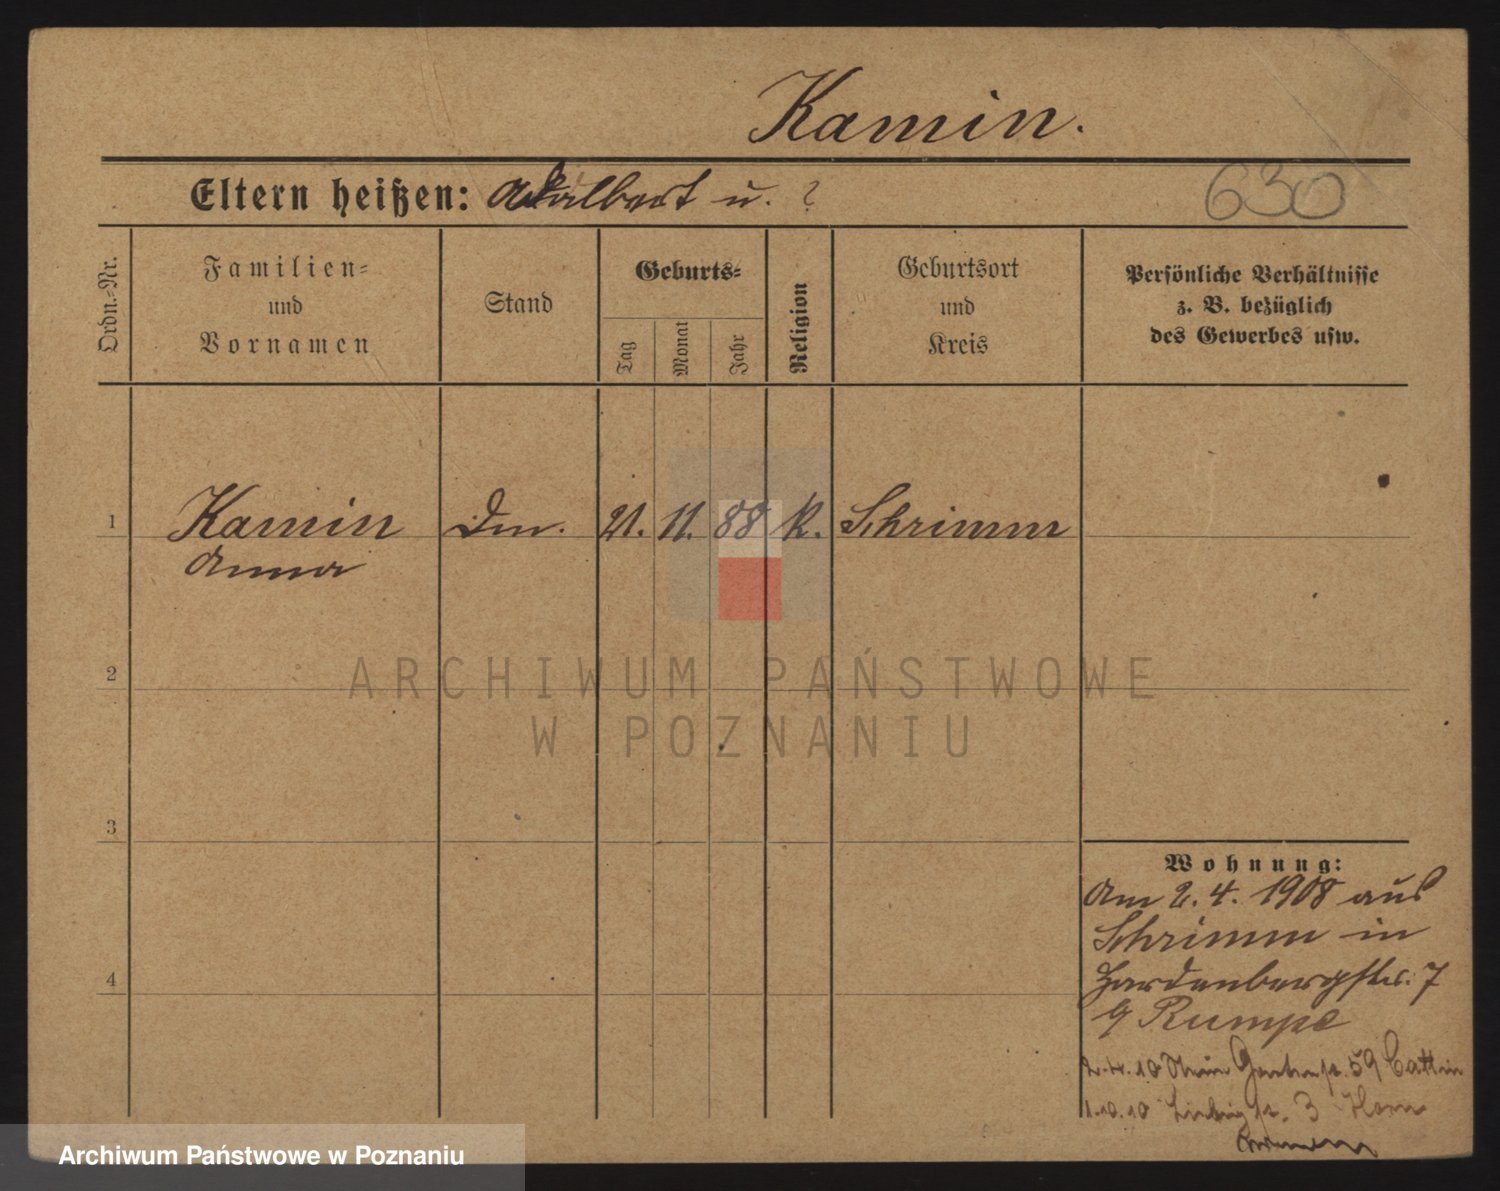 Kamin.
Eltern heißen: Adalbert u. ?
630
Ordn.-Nr.
Familien-
und
Vornamen
Stand
Geburts-
Tag
Monat
Jahr
Religion
Geburtsort
und
Kreis
Persönliche Verhältnisse
z. B. bezüglich
des Gewerbes usw.
1
Kamin
Anna
21. 11. 88
K.
Schrimm
2
ARCHIWUM PAŃSTWOWE
W POZNANIU
3
4
Wohnung:
Am 2. 4. 1908 aus
Schrimm in
Hardenbergstr. 7
Rumpe
2.4.10 59
1.10.10 3
Archiwum Państwowe w Poznaniu